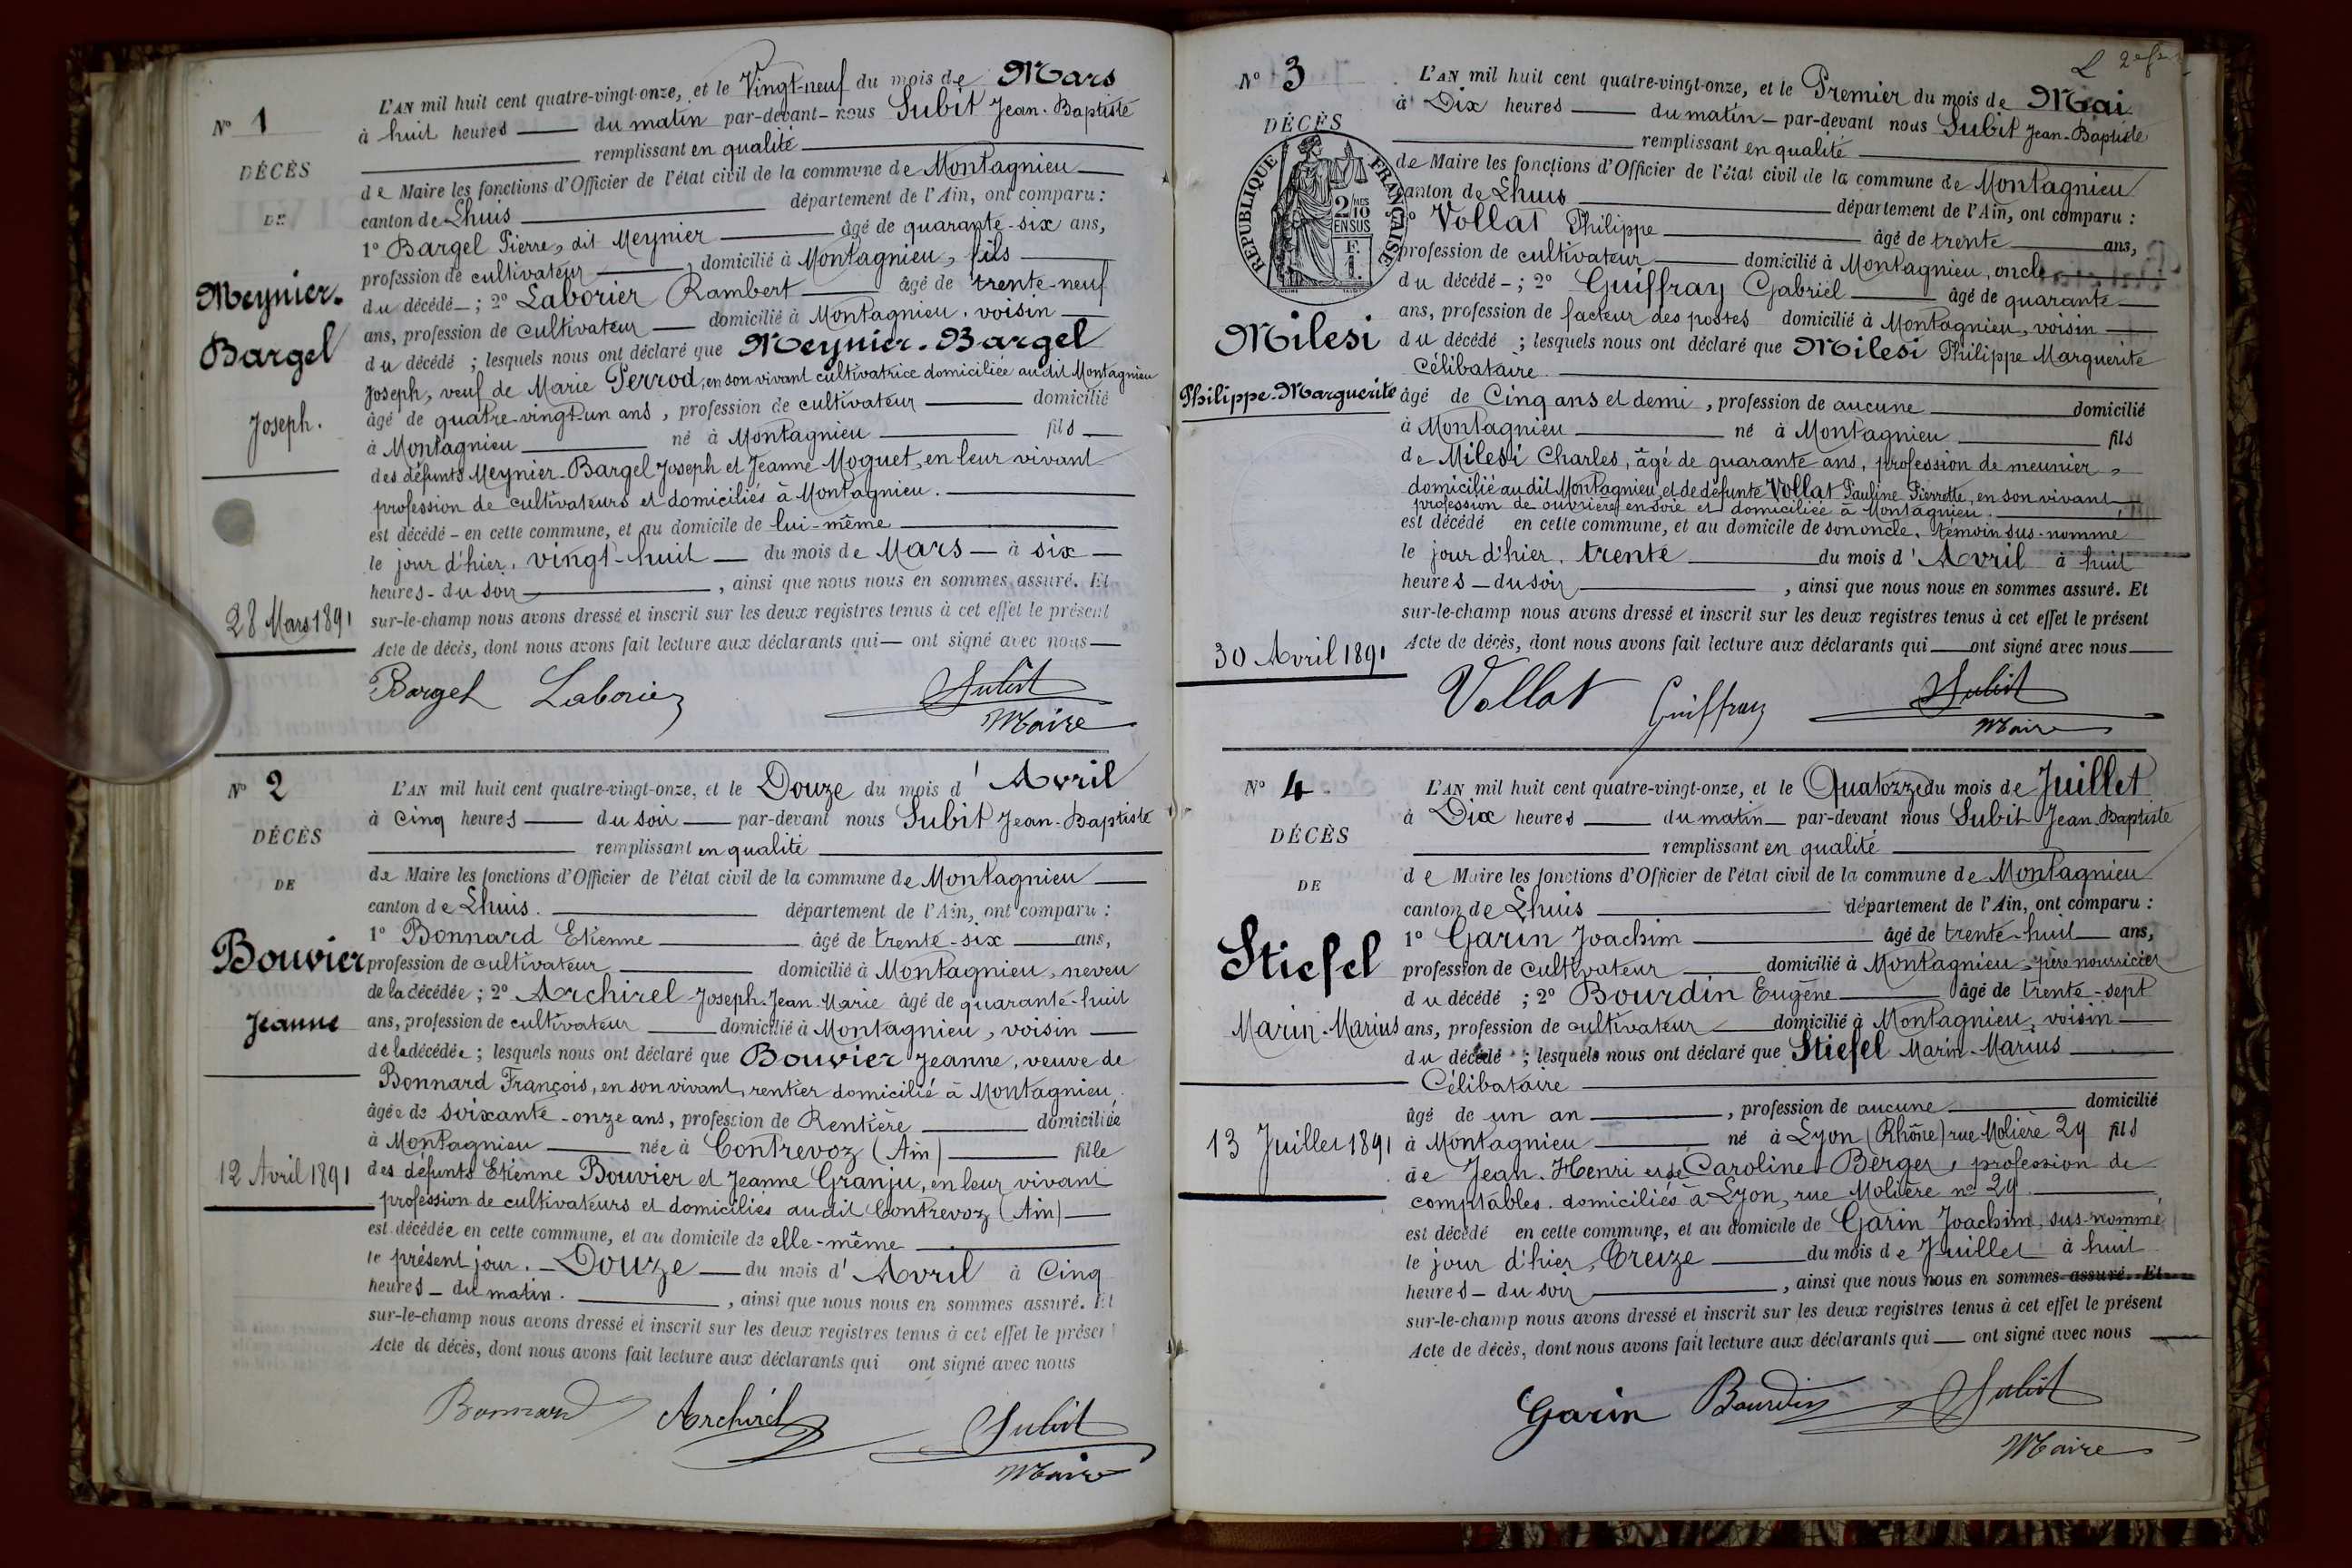 N° 1
DÉCÈS
DE
Meynier-
Bargel
Joseph.
28 Mars 1891
L'AN mil huit cent quatre-vingt-onze, et le Vingt-neuf du mois de Mars
à huit heures du matin par-devant nous Subit Jean-Baptiste
remplissant en qualité
de Maire les fonctions d'Officier de l'état civil de la commune de Montagnieu
canton de Lhuis département de l'Ain, ont comparu :
1° Bargel Pierre, dit Meynier âgé de quarante-six ans,
profession de cultivateur, domicilié à Montagnieu, fils
du décédé ; 2° Laborier Rambert âgé de trente-neuf
ans, profession de cultivateur domicilié à Montagnieu, voisin
du décédé ; lesquels nous ont déclaré que Meynier-Bargel
Joseph, veuf de Marie Perrod, en son vivant cultivatrice domiciliée audit Montagnieu
âgé de quatre-vingt-un ans, profession de cultivateur domicilié
à Montagnieu né à Montagnieu fils
des défunts Meynier-Bargel Joseph et Jeanne Moguet, en leur vivant
profession de cultivateurs et domiciliés à Montagnieu.
est décédé en cette commune, et au domicile de lui-même
le jour d'hier, vingt-huit du mois de Mars à six
heures du soir, ainsi que nous nous en sommes assuré. Et
sur-le-champ nous avons dressé et inscrit sur les deux registres tenus à cet effet le présent
Acte de décès, dont nous avons fait lecture aux déclarants qui ont signé avec nous
Bargel Laborier Subit
Maire
N° 2
DÉCÈS
DE
Bouvier
Jeanne
12 Avril 1891
L'AN mil huit cent quatre-vingt-onze, et le Douze du mois d'Avril
à cinq heures du soir par-devant nous Subit Jean-Baptiste
remplissant en qualité
de Maire les fonctions d'Officier de l'état civil de la commune de Montagnieu
canton de Lhuis. département de l'Ain, ont comparu :
1° Bonnard Etienne âgé de trente-six ans,
profession de cultivateur domicilié à Montagnieu, neveu
de la décédée ; 2° Archirel Joseph-Jean-Marie âgé de quarante-huit
ans, profession de cultivateur domicilié à Montagnieu, voisin
de la décédée ; lesquels nous ont déclaré que Bouvier Jeanne, veuve de
Bonnard François, en son vivant, rentier domicilié à Montagnieu,
âgée de soixante-onze ans, profession de Rentière domiciliée
à Montagnieu née à Contrevoz (Ain) fille
des défunts Etienne Bouvier et Jeanne Granju, en leur vivant
profession de cultivateurs et domiciliés audit Contrevoz (Ain)
est décédée en cette commune, et au domicile de elle-même
le présent jour. Douze du mois d'Avril à Cinq
heures du matin. , ainsi que nous nous en sommes assuré. Et
sur-le-champ nous avons dressé et inscrit sur les deux registres tenus à cet effet le présent
Acte de décès, dont nous avons fait lecture aux déclarants qui ont signé avec nous
Bonnard Archirel Subit
Maire
N° 3
DÉCÈS
RÉPUBLIQUE FRANÇAISE
2/10 MES
EN SUS
F.
1.
Milesi
Philippe-Marguerite
30 Avril 1891
L'AN mil huit cent quatre-vingt-onze, et le Premier du mois de Mai
à Dix heures du matin par-devant nous Subit Jean-Baptiste
remplissant en qualité
de Maire les fonctions d'Officier de l'état civil de la commune de Montagnieu
canton de Lhuis département de l'Ain, ont comparu :
1° Vollat Philippe âgé de trente ans,
profession de cultivateur domicilié à Montagnieu, oncle
du décédé ; 2° Guiffray Gabriel âgé de quarante
ans, profession de facteur des postes domicilié à Montagnieu, voisin
du décédé ; lesquels nous ont déclaré que Milesi Philippe Marguerite
Célibataire
âgé de Cinq ans et demi, profession de aucune domicilié
à Montagnieu né à Montagnieu fils
de Milesi Charles, âgé de quarante ans, profession de meunier,
domicilié audit Montagnieu et de défunte Vollat Pauline Pierrette, en son vivant
profession de ouvrière en soie et domiciliée à Montagnieu.
est décédé en cette commune, et au domicile de son oncle, témoin sus-nommé
le jour d'hier, trente du mois d'Avril à huit
heures du soir, ainsi que nous nous en sommes assuré. Et
sur-le-champ nous avons dressé et inscrit sur les deux registres tenus à cet effet le présent
Acte de décès, dont nous avons fait lecture aux déclarants qui ont signé avec nous
Vollat Guiffray Subit
Maire
N° 4
DÉCÈS
DE
Stiefel
Marin-Marius
13 Juillet 1891
L'AN mil huit cent quatre-vingt-onze, et le Quatorze du mois de Juillet
à Dix heures du matin par-devant nous Subit Jean-Baptiste
remplissant en qualité
de Maire les fonctions d'Officier de l'état civil de la commune de Montagnieu
canton de Lhuis département de l'Ain, ont comparu :
1° Garin Joachim âgé de trente-huit ans,
profession de cultivateur domicilié à Montagnieu, père nourricier
du décédé ; 2° Bourdin Eugène âgé de trente-sept
ans, profession de cultivateur domicilié à Montagnieu, voisin
du décédé ; lesquels nous ont déclaré que Stiefel Marin-Marius
Célibataire
âgé de un an, profession de aucune domicilié
à Montagnieu né à Lyon (Rhône) rue Molière 29 fils
de Jean-Henri et de Caroline Berger, profession de
comptables domiciliés à Lyon, rue Molière n° 29.
est décédé en cette commune, et au domicile de Garin Joachim, sus-nommé
le jour d'hier, Treize du mois de Juillet à huit
heures du soir, ainsi que nous nous en sommes assuré. Et
sur-le-champ nous avons dressé et inscrit sur les deux registres tenus à cet effet le présent
Acte de décès, dont nous avons fait lecture aux déclarants qui ont signé avec nous
Garin Bourdin Subit
Maire